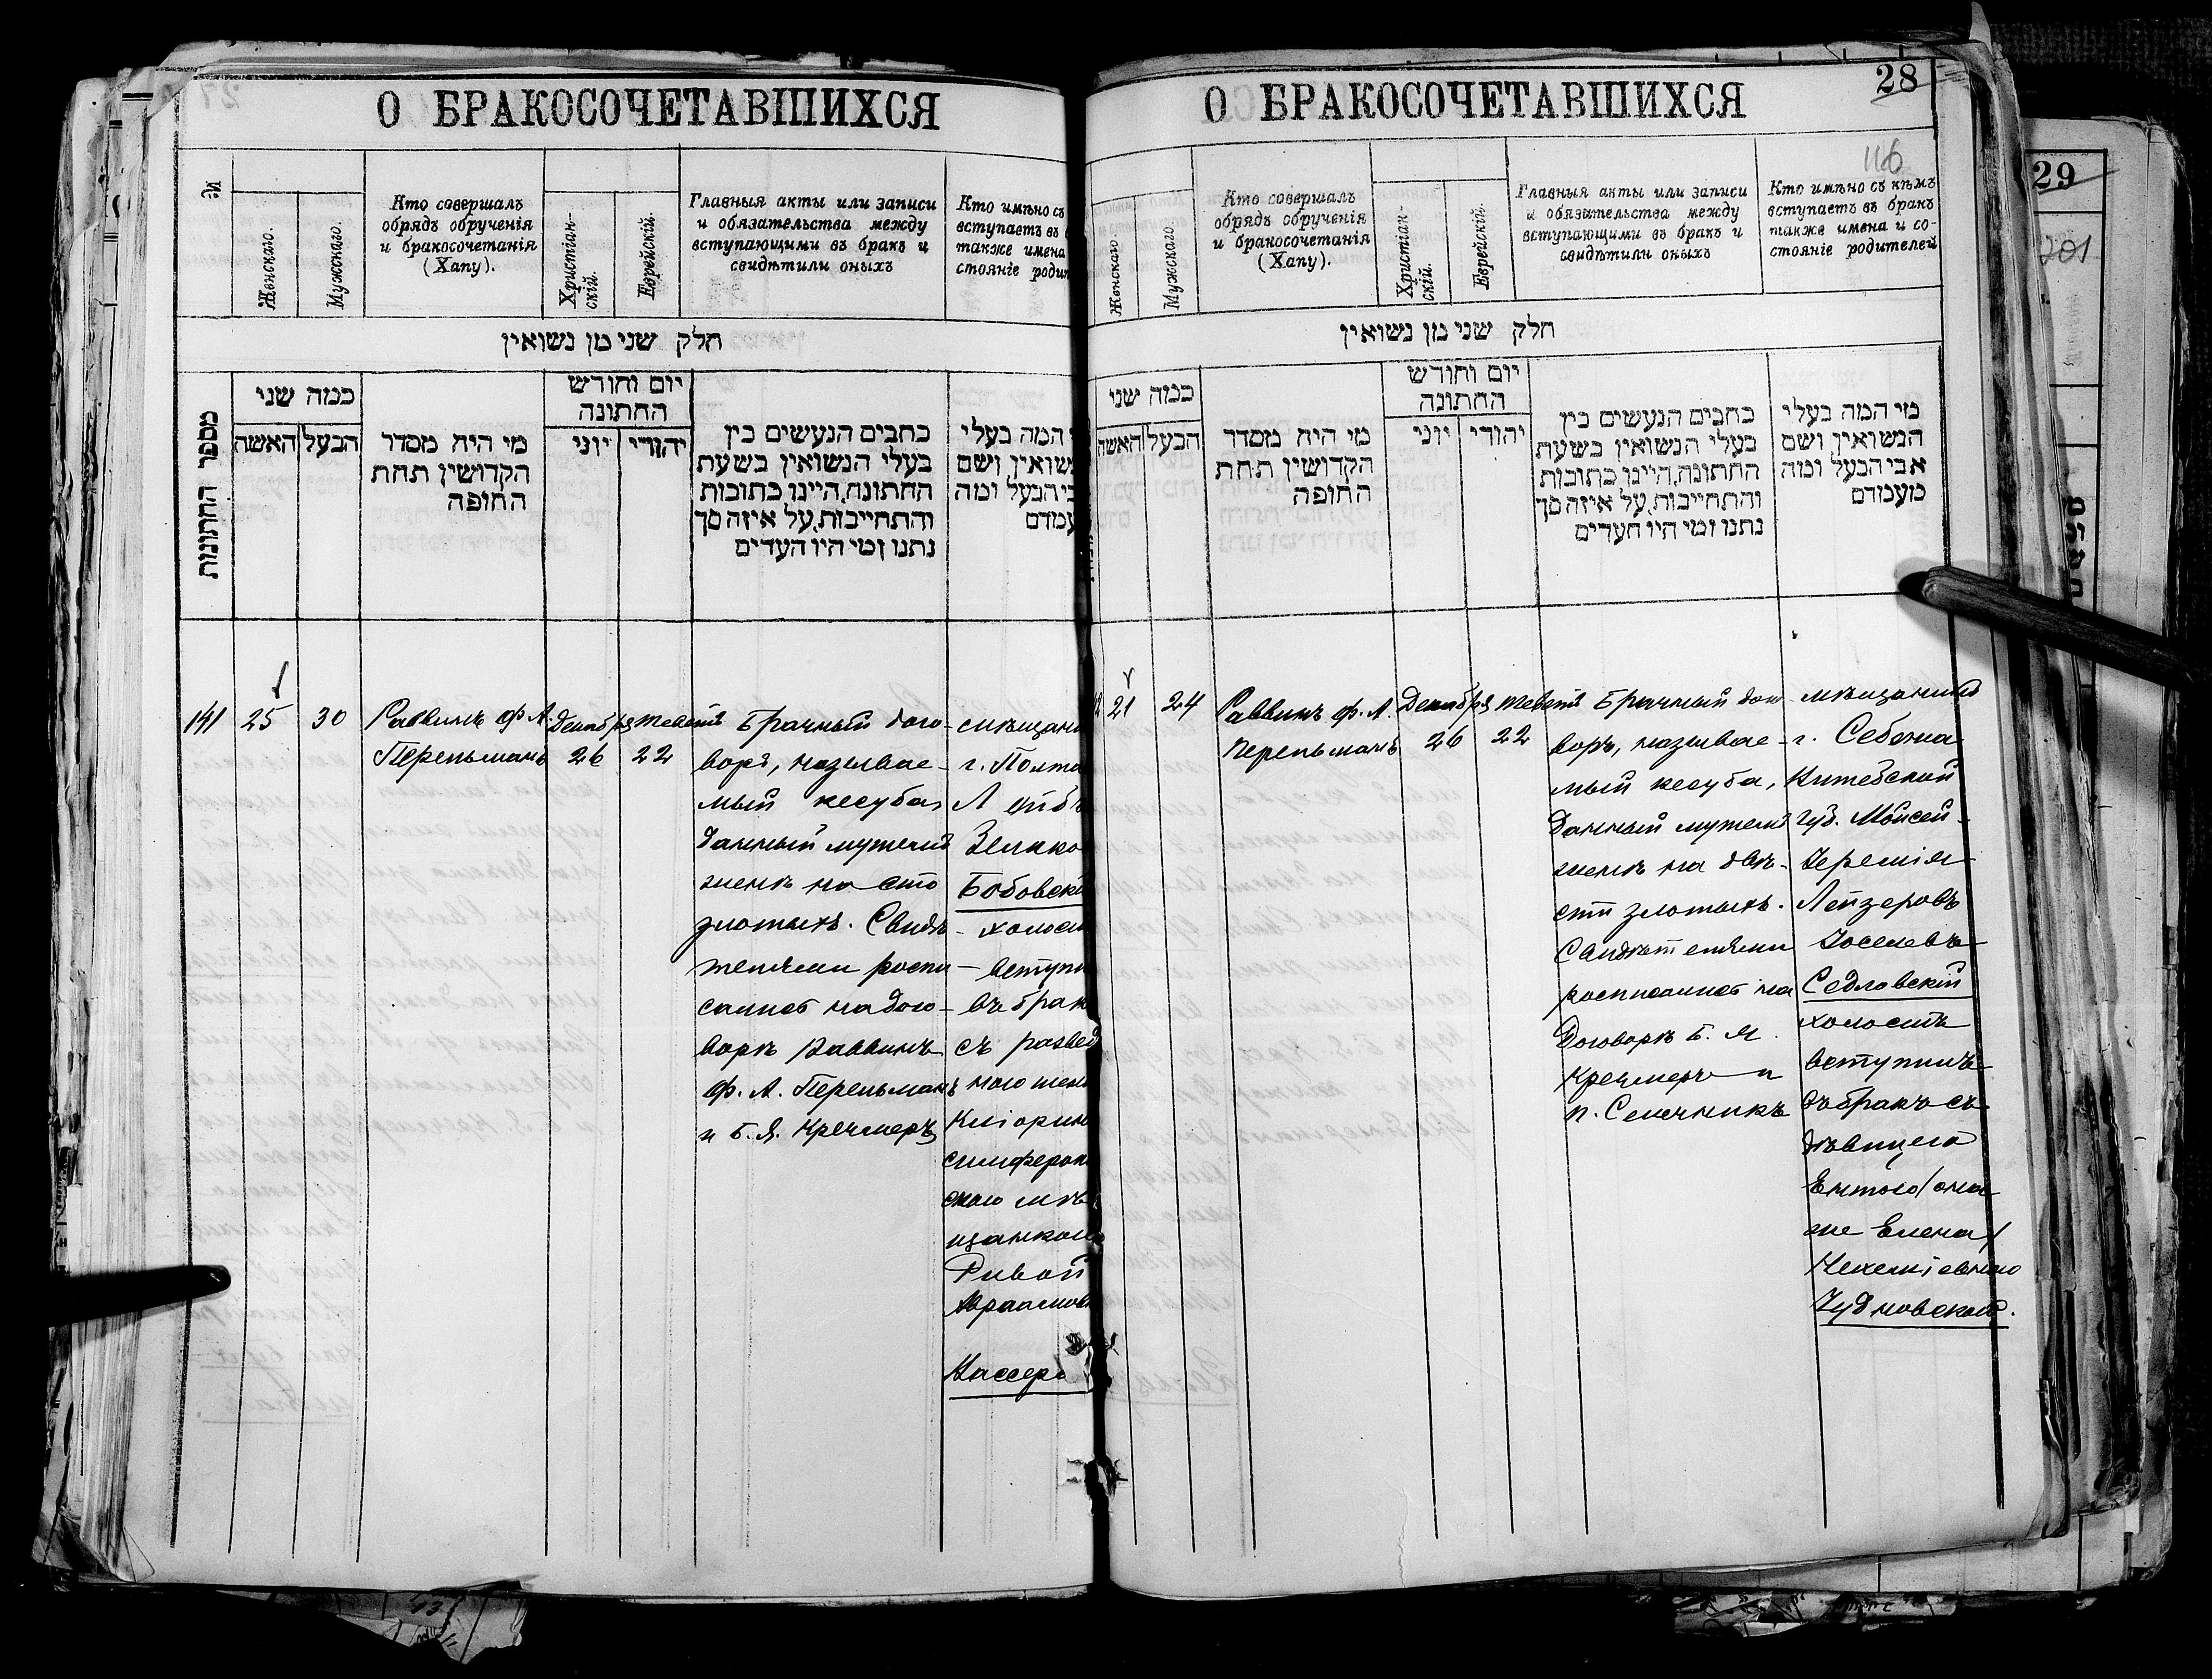 О БРАКОСОЧЕТАВШИХСЯ
№
Женскаго.
Мужскаго.
Кто совершалъ
обрядъ обрученія
и бракосочетанія
(Хапу).
Христіан-
скій.
Еврейскій.
Главныя акты или записи
и обязательства между
вступающими въ бракъ и
свидѣтили оныхъ
Кто имѣно съ
вступаетъ въ
также имена
стояніе роди
חלק שני מן נשואין
מספר החתונות
כמה שני
האשה
הבעל
מי היה מסדר
הקדושין תחת
החופה
יום וחודש
החתונה
יוני
יהודי
כתבים הנעשים בין
בעלי הנשואין בשעת
החתונה היינו כתובות
והתחייבות על איזה סך
נתנו ומי היו העדים
המה בעלי
שואין ושם
בי הבעל ומה
עמדם
141
25
30
Раввинъ Ф. А.
Перельманъ
Декабря
26
Тевета
22
Брачный дого-
воръ, называе-
мый кесуба,
данный мужемъ
женѣ на сто
злотыхъ. Свидѣ-
телями роспи-
саннсь на дого-
ворѣ Раввинъ
Ф. А. Перельманъ
и Б. Я. Кречмеръ
мѣщани
г. Полта
Лейб
Зелико
Бобовскі
холост
вступи
въ брак
съ развед
ною жен
симфероп
скою мѣ
щанкою
Ривой
Авраамов
Кассер
О БРАКОСОЧЕТАВШИХСЯ
28
116
Женскаго.
Мужскаго.
Кто совершалъ
обрядъ обрученія
и бракосочетанія
(Хапу).
Христіан-
скій.
Еврейскій.
Главныя акты или записи
и обязательства между
вступающими въ бракъ и
свидѣтили оныхъ
Кто имѣно съ кѣмъ
вступаетъ въ бракъ
также имена и со-
стояніе родителей
חלק שני מן נשואין
כמה שני
האשה
הבעל
מי היה מסדר
הקדושין תחת
החופה
יום וחודש
החתונה
יוני
יהודי
כתבים הנעשים בין
בעלי הנשואין בשעת
החתונה היינו כתובות
והתחייבות על איזה סך
נתנו ומי היו העדים
מי המה בעלי
הנשואין ושם
אבי הבעל ומה
מעמדם
21
24
Раввинъ Ф. А.
Перельманъ
Декабря
26
Тевета
22
Брачный дого
воръ, называе-
мый кесуба,
данный мужемъ
женѣ на двѣ-
сти злотыхъ.
Свидѣтелями
росписаннсь на
договорѣ Б. Я.
Кречмеръ и
мѣщанинъ
г. Себежа
Витебской
губ. Мойсей-
Іеремія
Лейзеровъ
Іоселевъ
Седловскій
холостъ
вступилъ
въ бракъ съ
дѣвицею
(она
же Елена)
Нехеміевною
Чудновской.
29
201